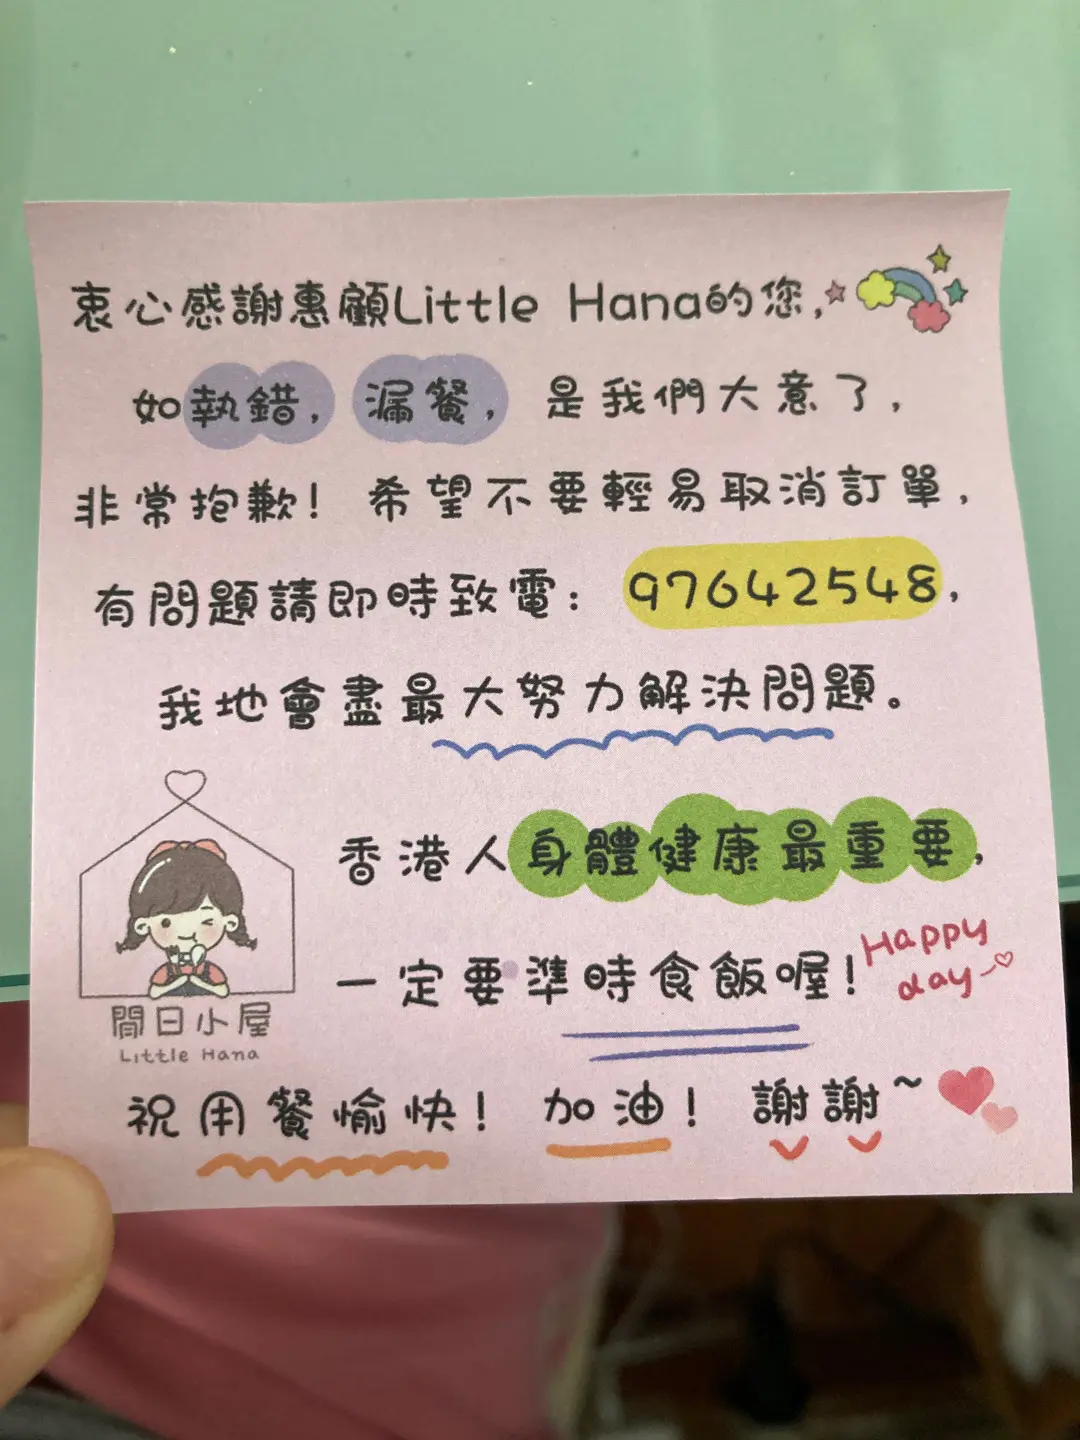 衷心感謝惠顧Little Hana的您,
如執錯, 漏餐, 是我們大意了,
非常抱歉! 希望不要輕易取消訂單,
有問題請即時致電: 97642548,
我地會盡最大努力解決問題。
香港人身體健康最重要,
一定要準時食飯喔!
Happy
day
間日小屋
Little Hana
祝用餐愉快! 加油! 謝謝~